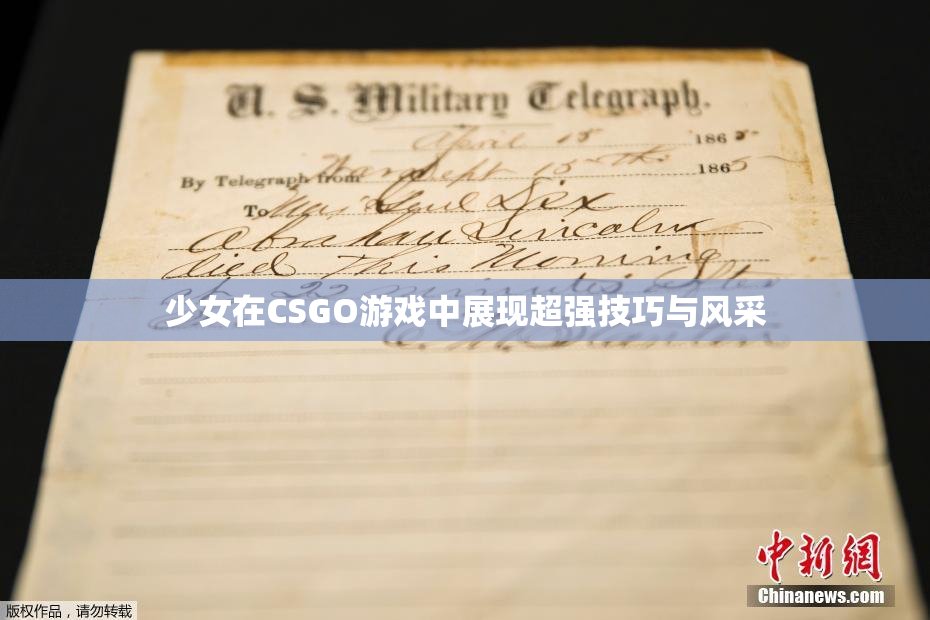 U. S. Military Telegraph.
April 15 1865
By Telegraph from War Dept 15th 1865
To Maj Genl Dix
Abraham Lincoln
died This Morning
at 22 minutes after
少女在CSGO游戏中展现超强技巧与风采
E. M. Stanton
中新網
Chinanews.com
版权作品，请勿转载